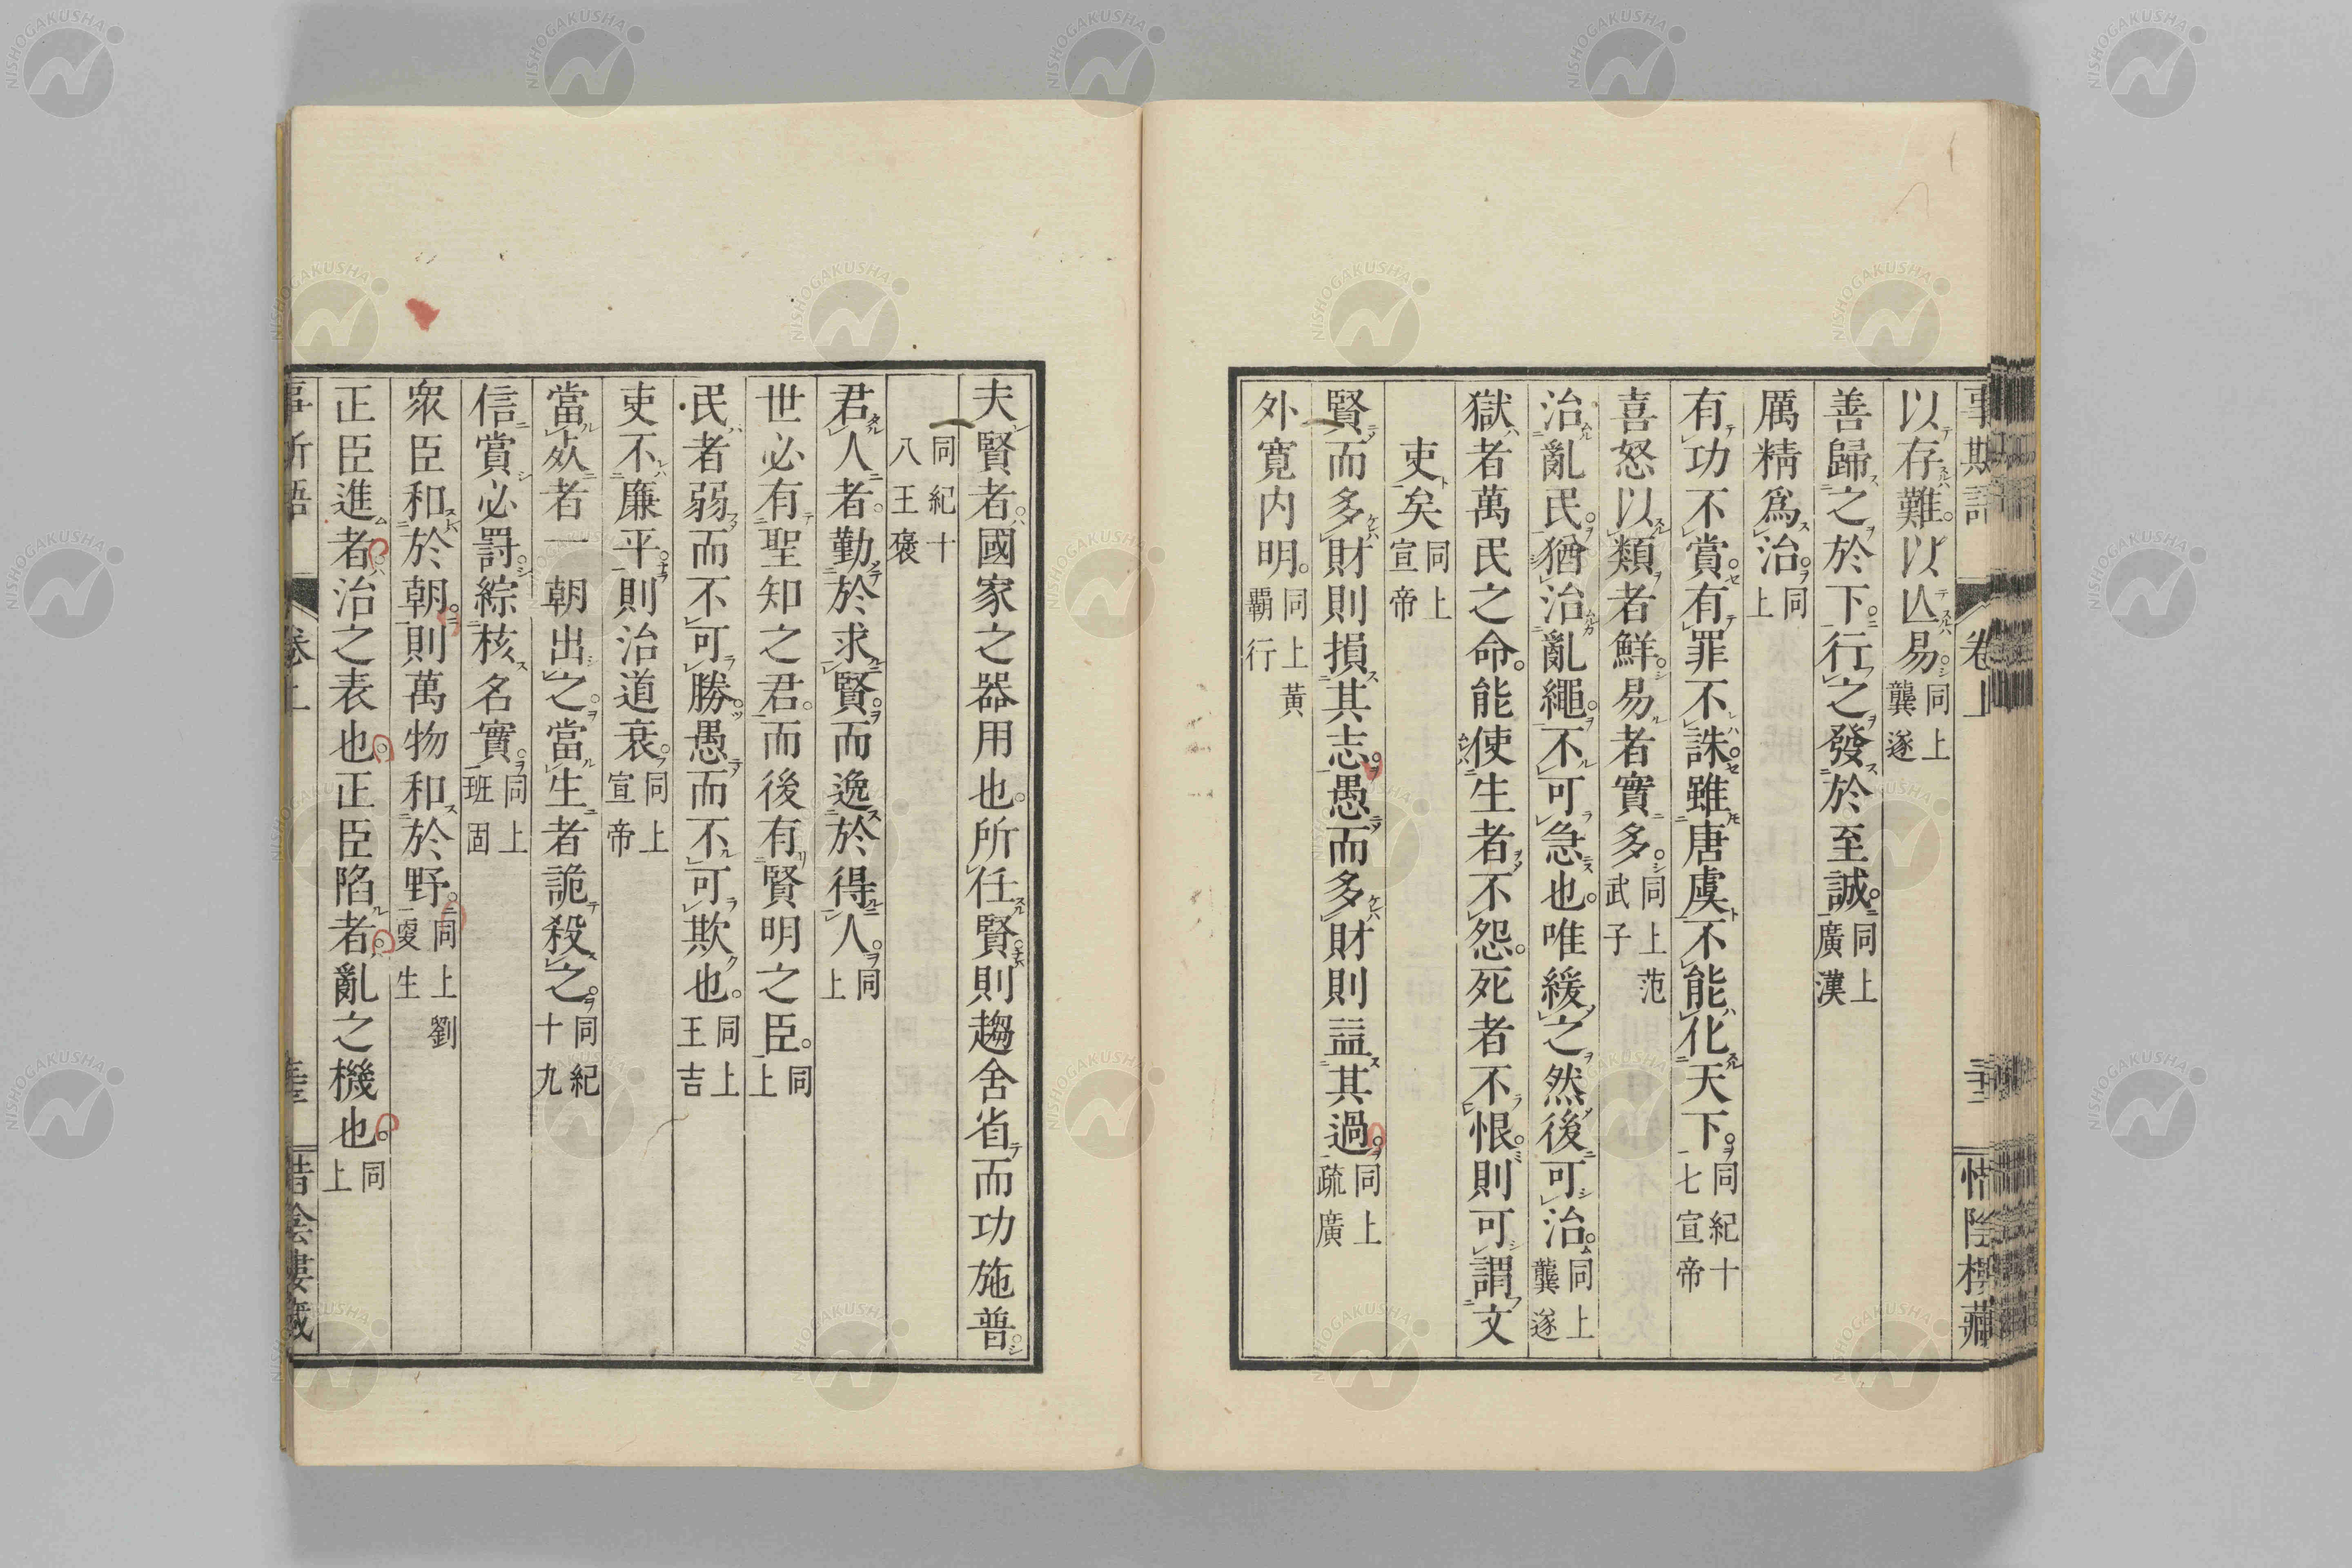 以存難以亾易同上龔遂
善歸之於下行之發於至誠同上廣漢
厲精爲治同上
有功不賞有罪不誅雖唐虞不能化天下同紀十七宣帝
喜怒以類者鮮易者實多同上范武子
治亂民猶治亂繩不可急也唯緩之然後可治同上龔遂
獄者萬民之命能使生者不怨死者不恨則可謂文
吏矣同上宣帝
賢而多財則損其志愚而多財則益其過同上疏廣
外寬内明同上黃覇行
夫賢者國家之器用也所任賢則趨舍省而功施普
同紀十八王褒
君人者勤於求賢而逸於得人同上
世必有聖知之君而後有賢明之臣同上
民者弱而不可勝愚而不可欺也同上王吉
吏不廉平則治道衰同上宣帝
當死者一朝出之當生者詭殺之同紀十九
信賞必罸綜核名實同上班固
衆臣和於朝則萬物和於野同上劉更生
正臣進者治之表也正臣陷者亂之機也同上
NISHOGAKUSHA